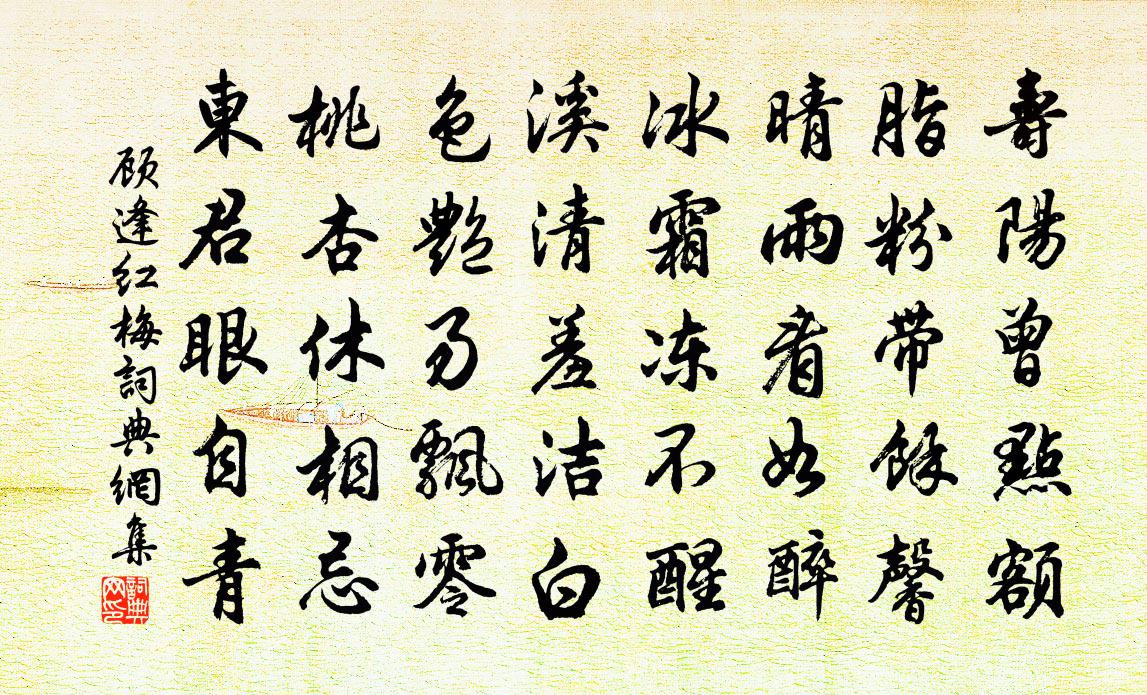 壽陽曾點額
脂粉帶餘馨
晴雨看如醉
冰霜冻不醒
溪清羞洁白
色艷易飄零
桃杏休相忌
東君眼自青
顾逢红梅詞典網集
詞典网印